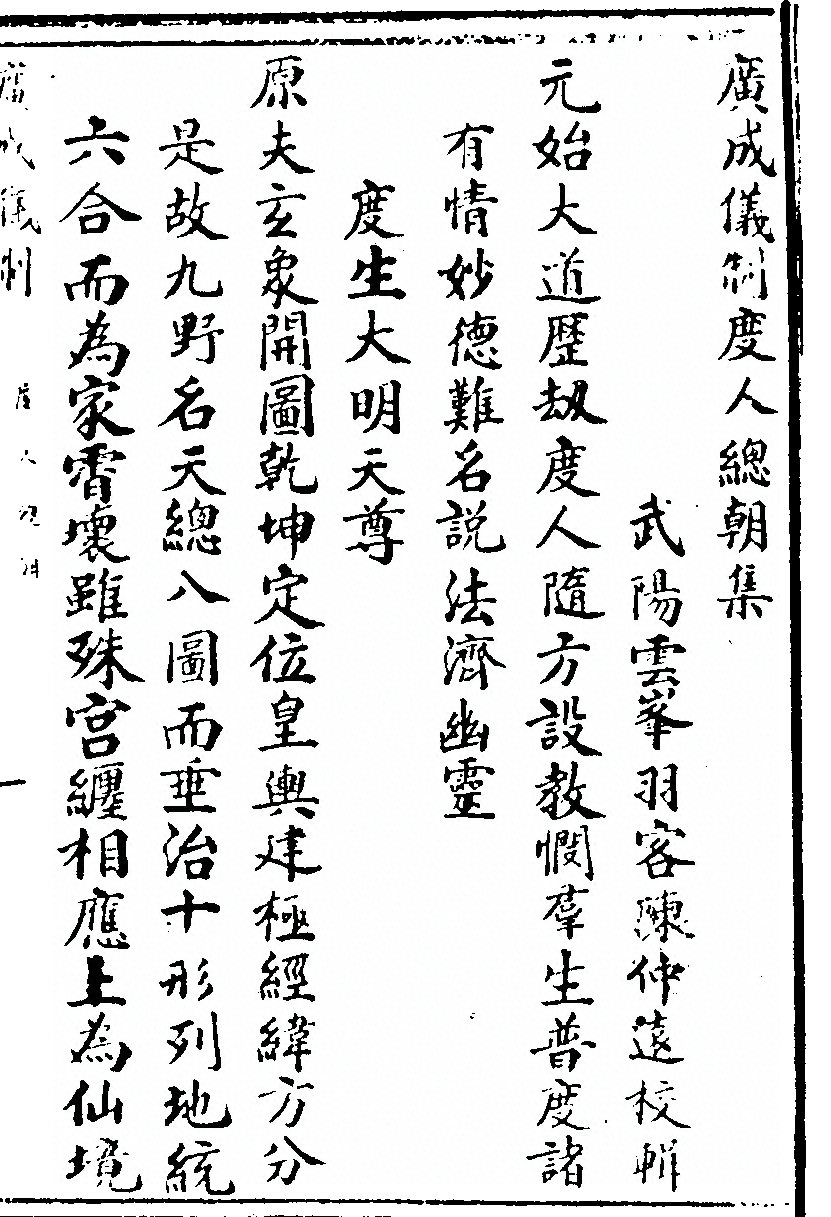 廣成儀制度人總朝集
武陽雲峯羽客陳仲遠校輯
元始大道歷劫度人隨方設教憫羣生普度諸
有情妙德難名說法濟幽靈
度生大明天尊
原夫玄象開圖乾坤定位皇輿建極經緯方分
是故九野名天總八圖而垂治十形列地統
六合而為家霄壤雖殊宮纏相應上為仙境
廣成儀制
度人
一